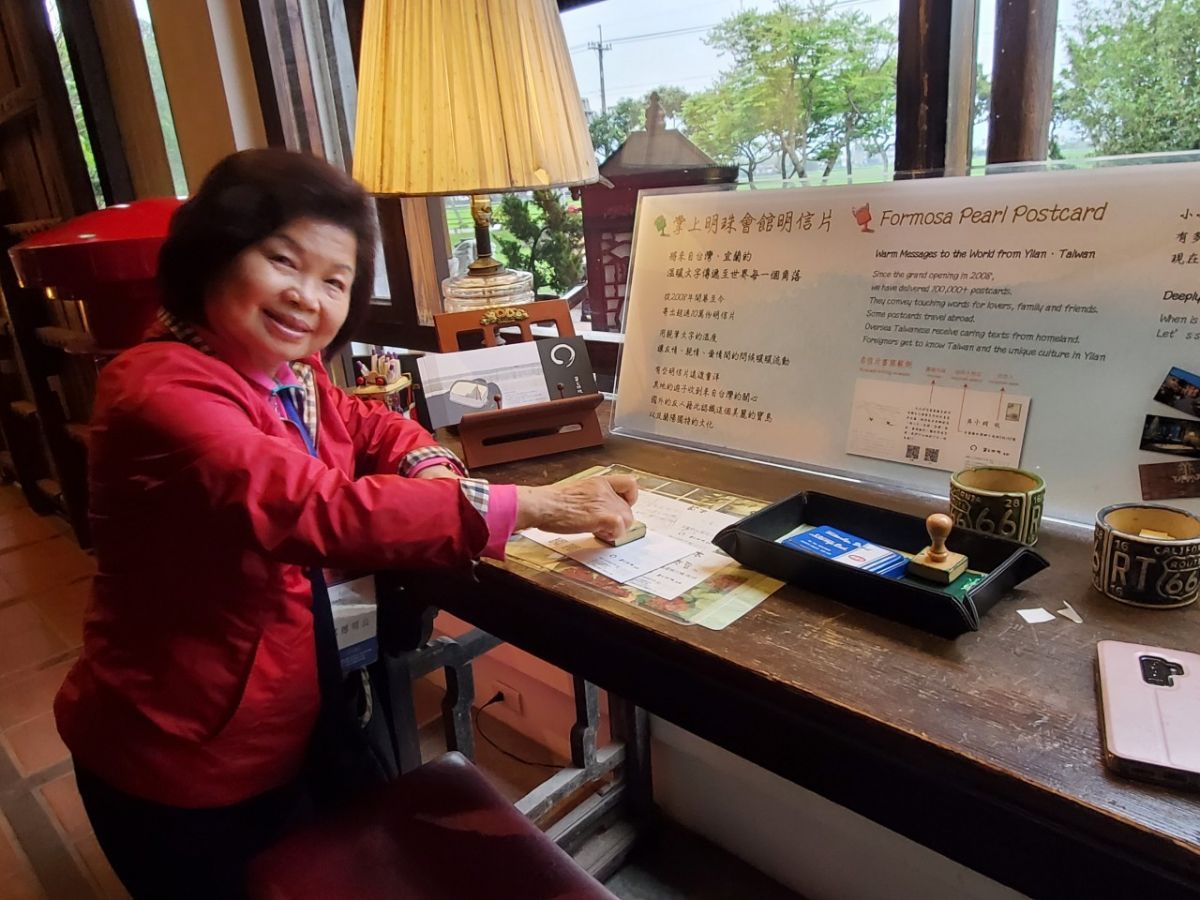 掌上明珠會館明信片
將來自台灣·宜蘭的
溫暖文字傳遞至世界每一個角落
從2008年開幕至今
寄出超過10萬份明信片
用親筆文字的溫度
讓友情、親情、愛情間的問候暖暖流動
有些明信片遠渡重洋
異地的遊子收到來自台灣的關心
國外的友人藉此認識這個美麗的寶島
以及蘭陽獨特的文化
Formosa Pearl Postcard
Warm Messages to the World from Yilan · Taiwan
Since the grand opening in 2008',
we have delivered 100,000+ postcards.
They convey touching words for lovers, family and friends.
Some postcards travel abroad.
Oversea Taiwanese receive caring texts from homeland.
Foreigners get to know Taiwan and the unique culture in Yilan
小
有
現在
Deeply
When is
Let's
28
66
16 CALIF
RT 66